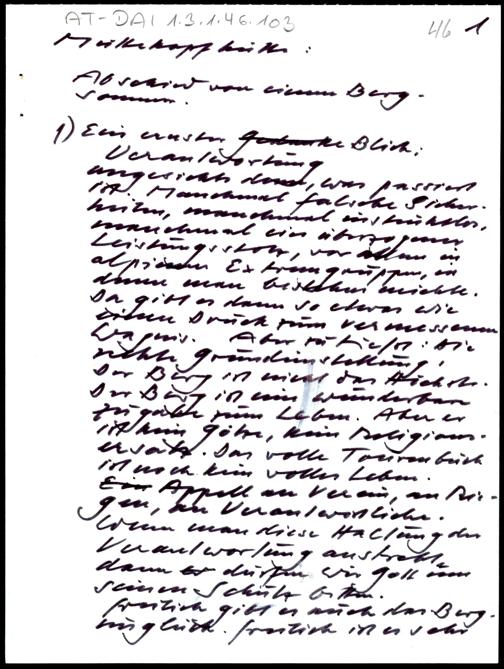 AT-DAI 1.3.1.46.103
46 1
Muttekopfhütte :
Abschied von einem Berg-
sommer.
1) Ein ernster Gedanke Blick:
Verantwortung
angesichts dem, was passiert
ist. Manchmal falsche Sicher-
heiten, manchmal instinktlos,
manchmal ein überzogener
Leistungsstolz, vor allem in
alpinen Extremgruppen, in
denen man bestehen möchte.
Da gibt es dann so etwas wie
einen Druck zum vermessenen
Wagnis. Aber zutiefst: die
rechte Grundeinstellung,
Der Berg ist nicht das Höchste.
Der Berg ist eine wunderbare
Zugabe zum Leben. Aber er
ist kein Götze, kein Religions-
ersatz. Das volle Tourenbuch
ist noch kein volles Leben.
Ein Appell an Verein, an
gen, an Verantwortliche.
Wenn man diese Haltung der
Verantwortung ausstrahlt
dann er dürfen wir Gott um
seinen Schutz bitten.
Freilich gibt es auch das Berg-
unglück. Freilich ist es sehr